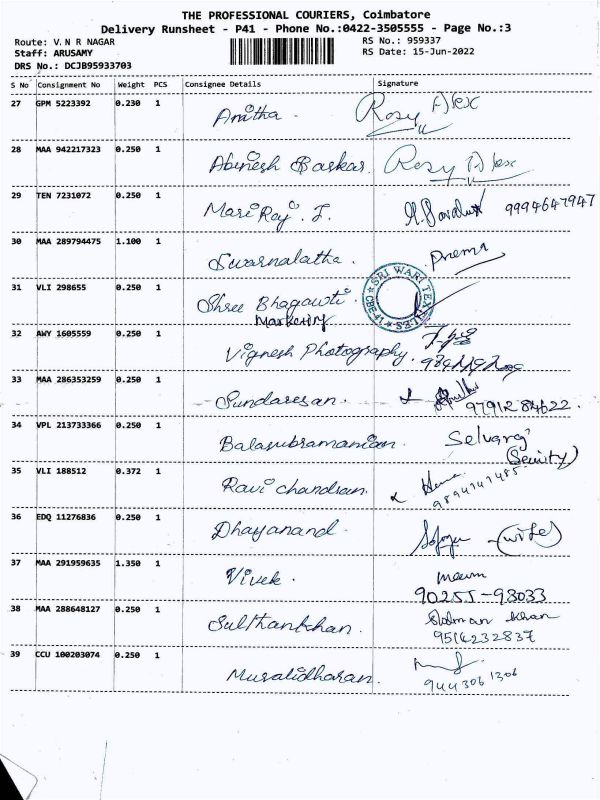 THE PROFESSIONAL COURIERS, Coimbatore
Delivery Runsheet - P41 - Phone No.:0422-3505555 - Page No.:3
Route: V. N R NAGAR RS No.: 959337
Staff: ARUSAMY RS Date: 15-Jun-2022
DRS No.: DCJB95933703
S No Consignment No Weight PCS Consignee Details Signature
27 GPM 5223392 0.230 1 Anitha. Rosy Alex
28 MAA 942217323 0.250 1 Abinesh Baskar. Rosy Alex
29 TEN 7231072 0.250 1 Mari Raj. J. 9994647947
30 MAA 289794475 1.100 1 Swarnalatha. Prema
31 VLI 298655 0.250 1 Shree Bhagawti
Marketing
SRI WARI TEXTILES
CBE-41
32 AWY 1605559 0.250 1 Vignesh Photography.
33 MAA 286353259 0.250 1 Sundaresan. 9791284622.
34 VPL 213733366 0.250 1 Balasubramanian. Selvaraj
(Security)
35 VLI 188512 0.372 1 Ravi chandran.
36 EDQ 11276836 0.250 1 Dhayanand. (wife)
37 MAA 291959635 1.350 1 Vivek.
90255-98033
38 MAA 288648127 0.250 1 Sulthankhan. Salman khan
9514232837
39 CCU 100203074 0.250 1 Muralidharan.
9443061306